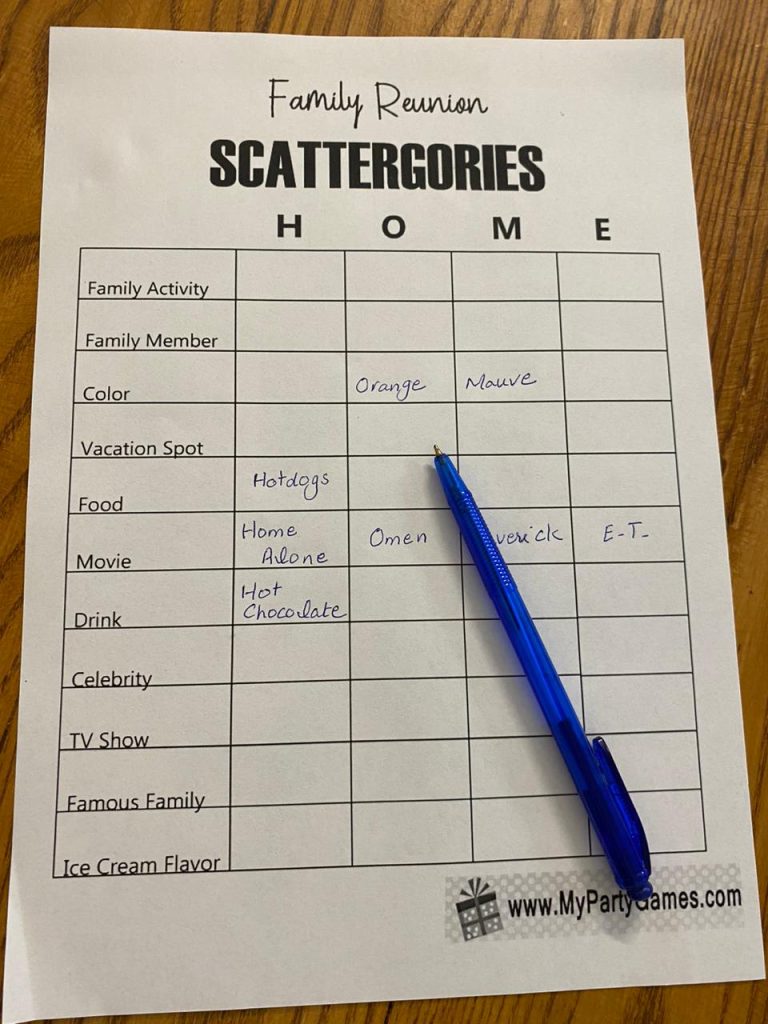 Family Reunion
SCATTERGORIES
H O M E
Family Activity
Family Member
Color Orange Mauve
Vacation Spot
Food Hotdogs
Movie Home Alone Omen verick E-T-
Drink Hot Chocolate
Celebrity
TV Show
Famous Family
Ice Cream Flavor
www.MyPartyGames.com